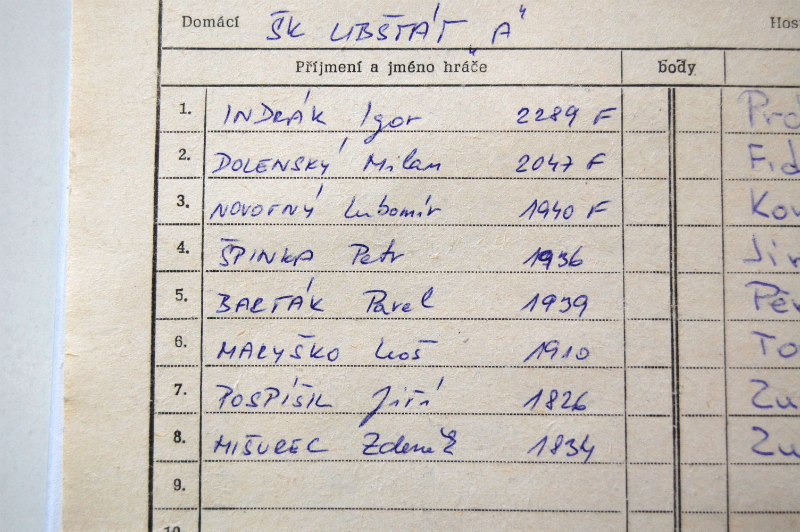 Domácí ŠK LIBŠTÁT "A" Host
Příjmení a jméno hráče body
1. INDRÁK Igor 2289 F
2. DOLENSKÝ Milan 2047 F Fid
3. NOVOTNÝ Lubomír 1940 F Kov
4. ŠPINKA Petr 1936 Jir
5. BARTÁK Pavel 1939 Pěv
6. MALYŠKO Luboš 1910 To
7. POSPÍŠIL Jiří 1826 Zu
8. MIŠUREC Zdeněk 1834 Zu
9.
10.